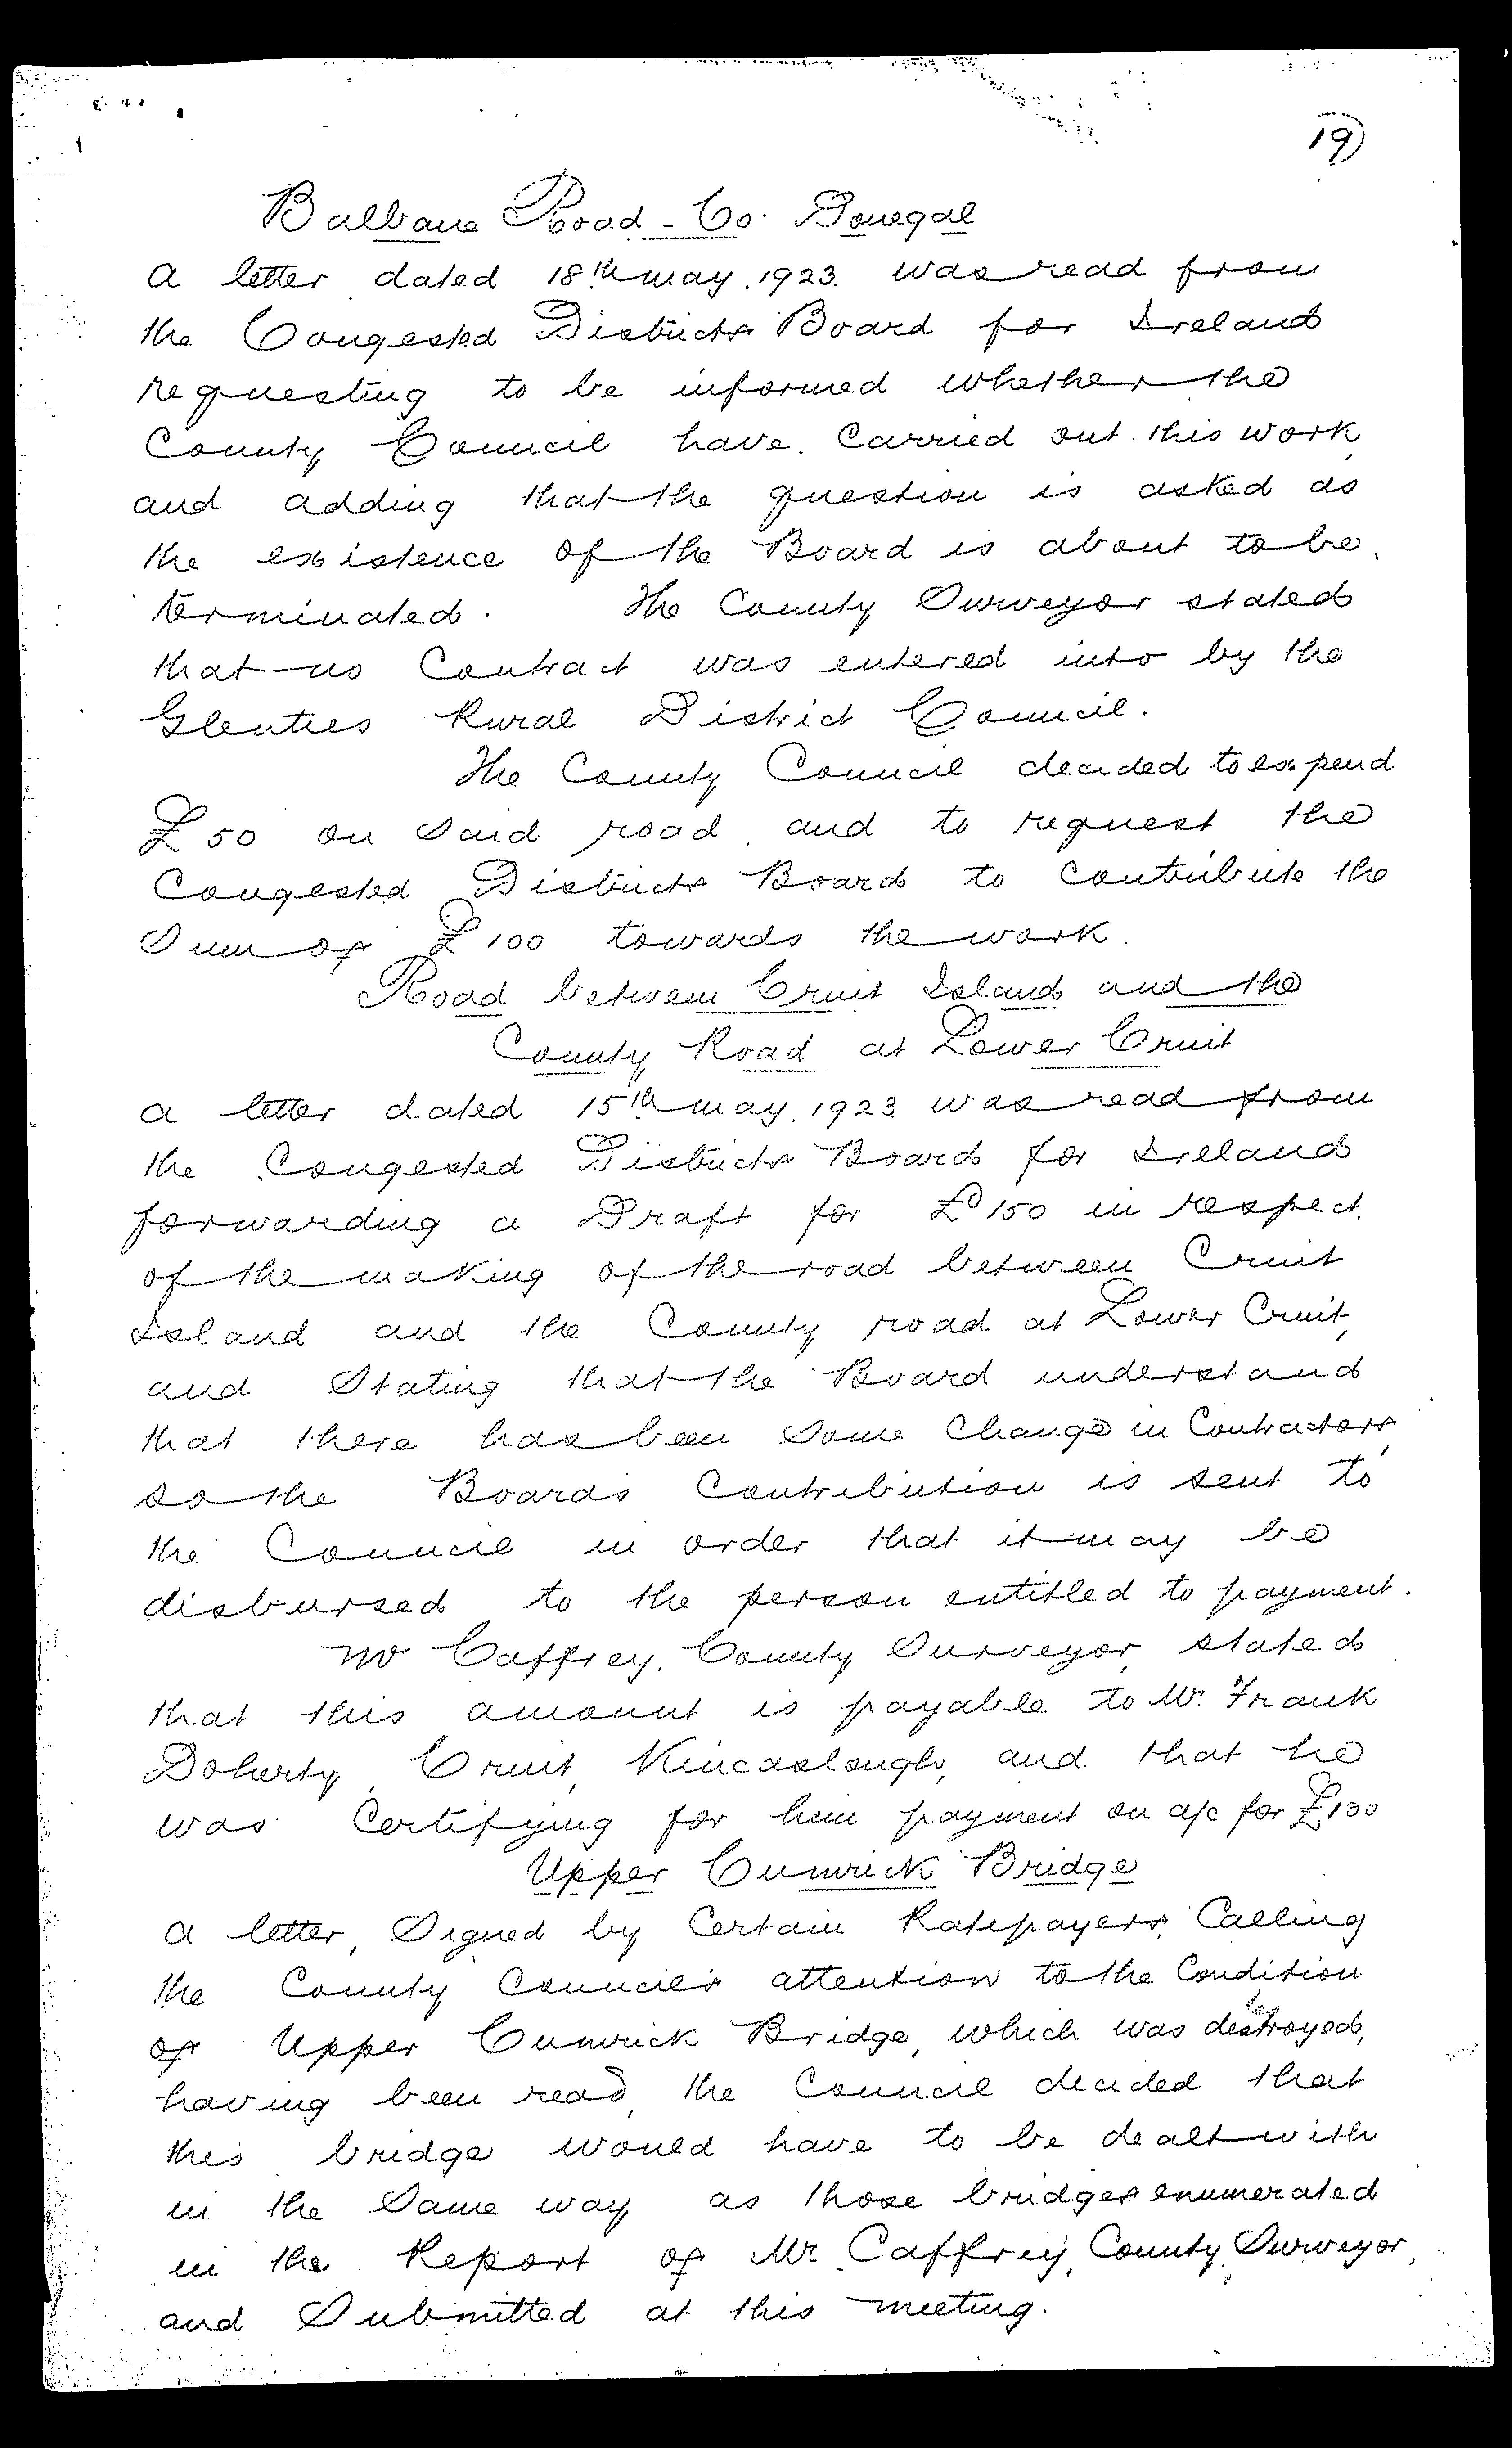 19)
Balbane Road - Co. Donegal
A letter dated 18th May. 1923. was read from
the Congested Districts Board for Ireland
requesting to be informed whether the
County Council have carried out this work,
and adding that the question is asked as
the existence of the Board is about to be
terminated. The County Surveyor stated
that no Contract was entered into by the
Glenties Rural District Council.
The County Council decided to expend
£50 on said road and to request the
Congested Districts Board to Contribute the
Sum of £100 towards the work.
Road between Cruit Island and the
County Road at Lower Cruit
A letter dated 15th May. 1923 was read from
the Congested Districts Board for Ireland
forwarding a Draft for £150 in respect
of the making of the road between Cruit
Island and the County road at Lower Cruit,
and Stating that the Board understand
that there has been some Change in Contractors,
so the Boards Contribution is sent to
the Council in order that it may be
disbursed to the person entitled to payment.
Mr Caffrey, County Surveyor, stated
that this amount is payable to Mr. Frank
Doherty, Cruit, Kincaslough, and that he
was Certifying for him payment on a/c for £100
Upper Cunwrick Bridge
A letter, Signed by Certain Ratepayers, Calling
the County Council's attention to the Condition
of Upper Cunwrick Bridge, which was destroyed,
having been read, the Council decided that
this bridge would have to be dealt with
in the Same way as those bridges enumerated
in the Report of Mr. Caffrey, County Surveyor,
and Submitted at this meeting.